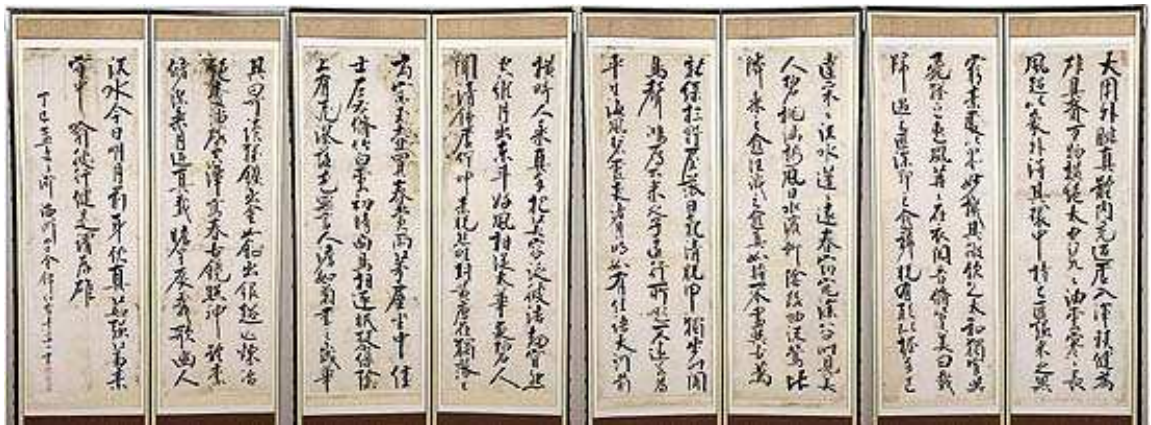 大用外腓真體內充返虛入渾積健為
雄具備萬物橫絕太空荒荒油雲寥寥長
風超以象外得其環中持之匪強來之無
窮素處以默妙機其微飲之太和獨鶴與
飛猶之惠風荏苒在衣閱音修篁美曰載
歸遇之匪深即之愈稀脫有形似握手已
違采采流水蓬蓬遠春窈窕深谷時見美
人碧桃滿樹風日水濱柳陰路曲流鶯比
鄰乘之愈往識之愈真如將不盡與古為
新綠杉野屋落日氣清脫巾獨步時聞
鳥聲鴻雁不來之子遠行所思不遠若為
平生海風碧雲夜渚月明如有佳語大河前
橫畸人乘真手把芙蓉泛彼浩劫窅然
空縱月出東斗好風相從太華夜碧人
聞清鐘虛佇神素脫然畦封黃唐在獨落落
玄宗玉壺買春賞雨茅屋坐中佳
士左右修竹白雲初晴幽鳥相逐眠琴綠陰
上有飛瀑落花無言人淡如菊書之歲華
其曰可讀猶鑛出金如鉛出銀超心煉冶
絕愛緇磷空潭瀉春古鏡照神體素
儲潔乘月返真載瞻星辰載歌幽人
流水今日明月前身飲真茹強蓄素
守中喻彼行健是謂存雄
丁巳